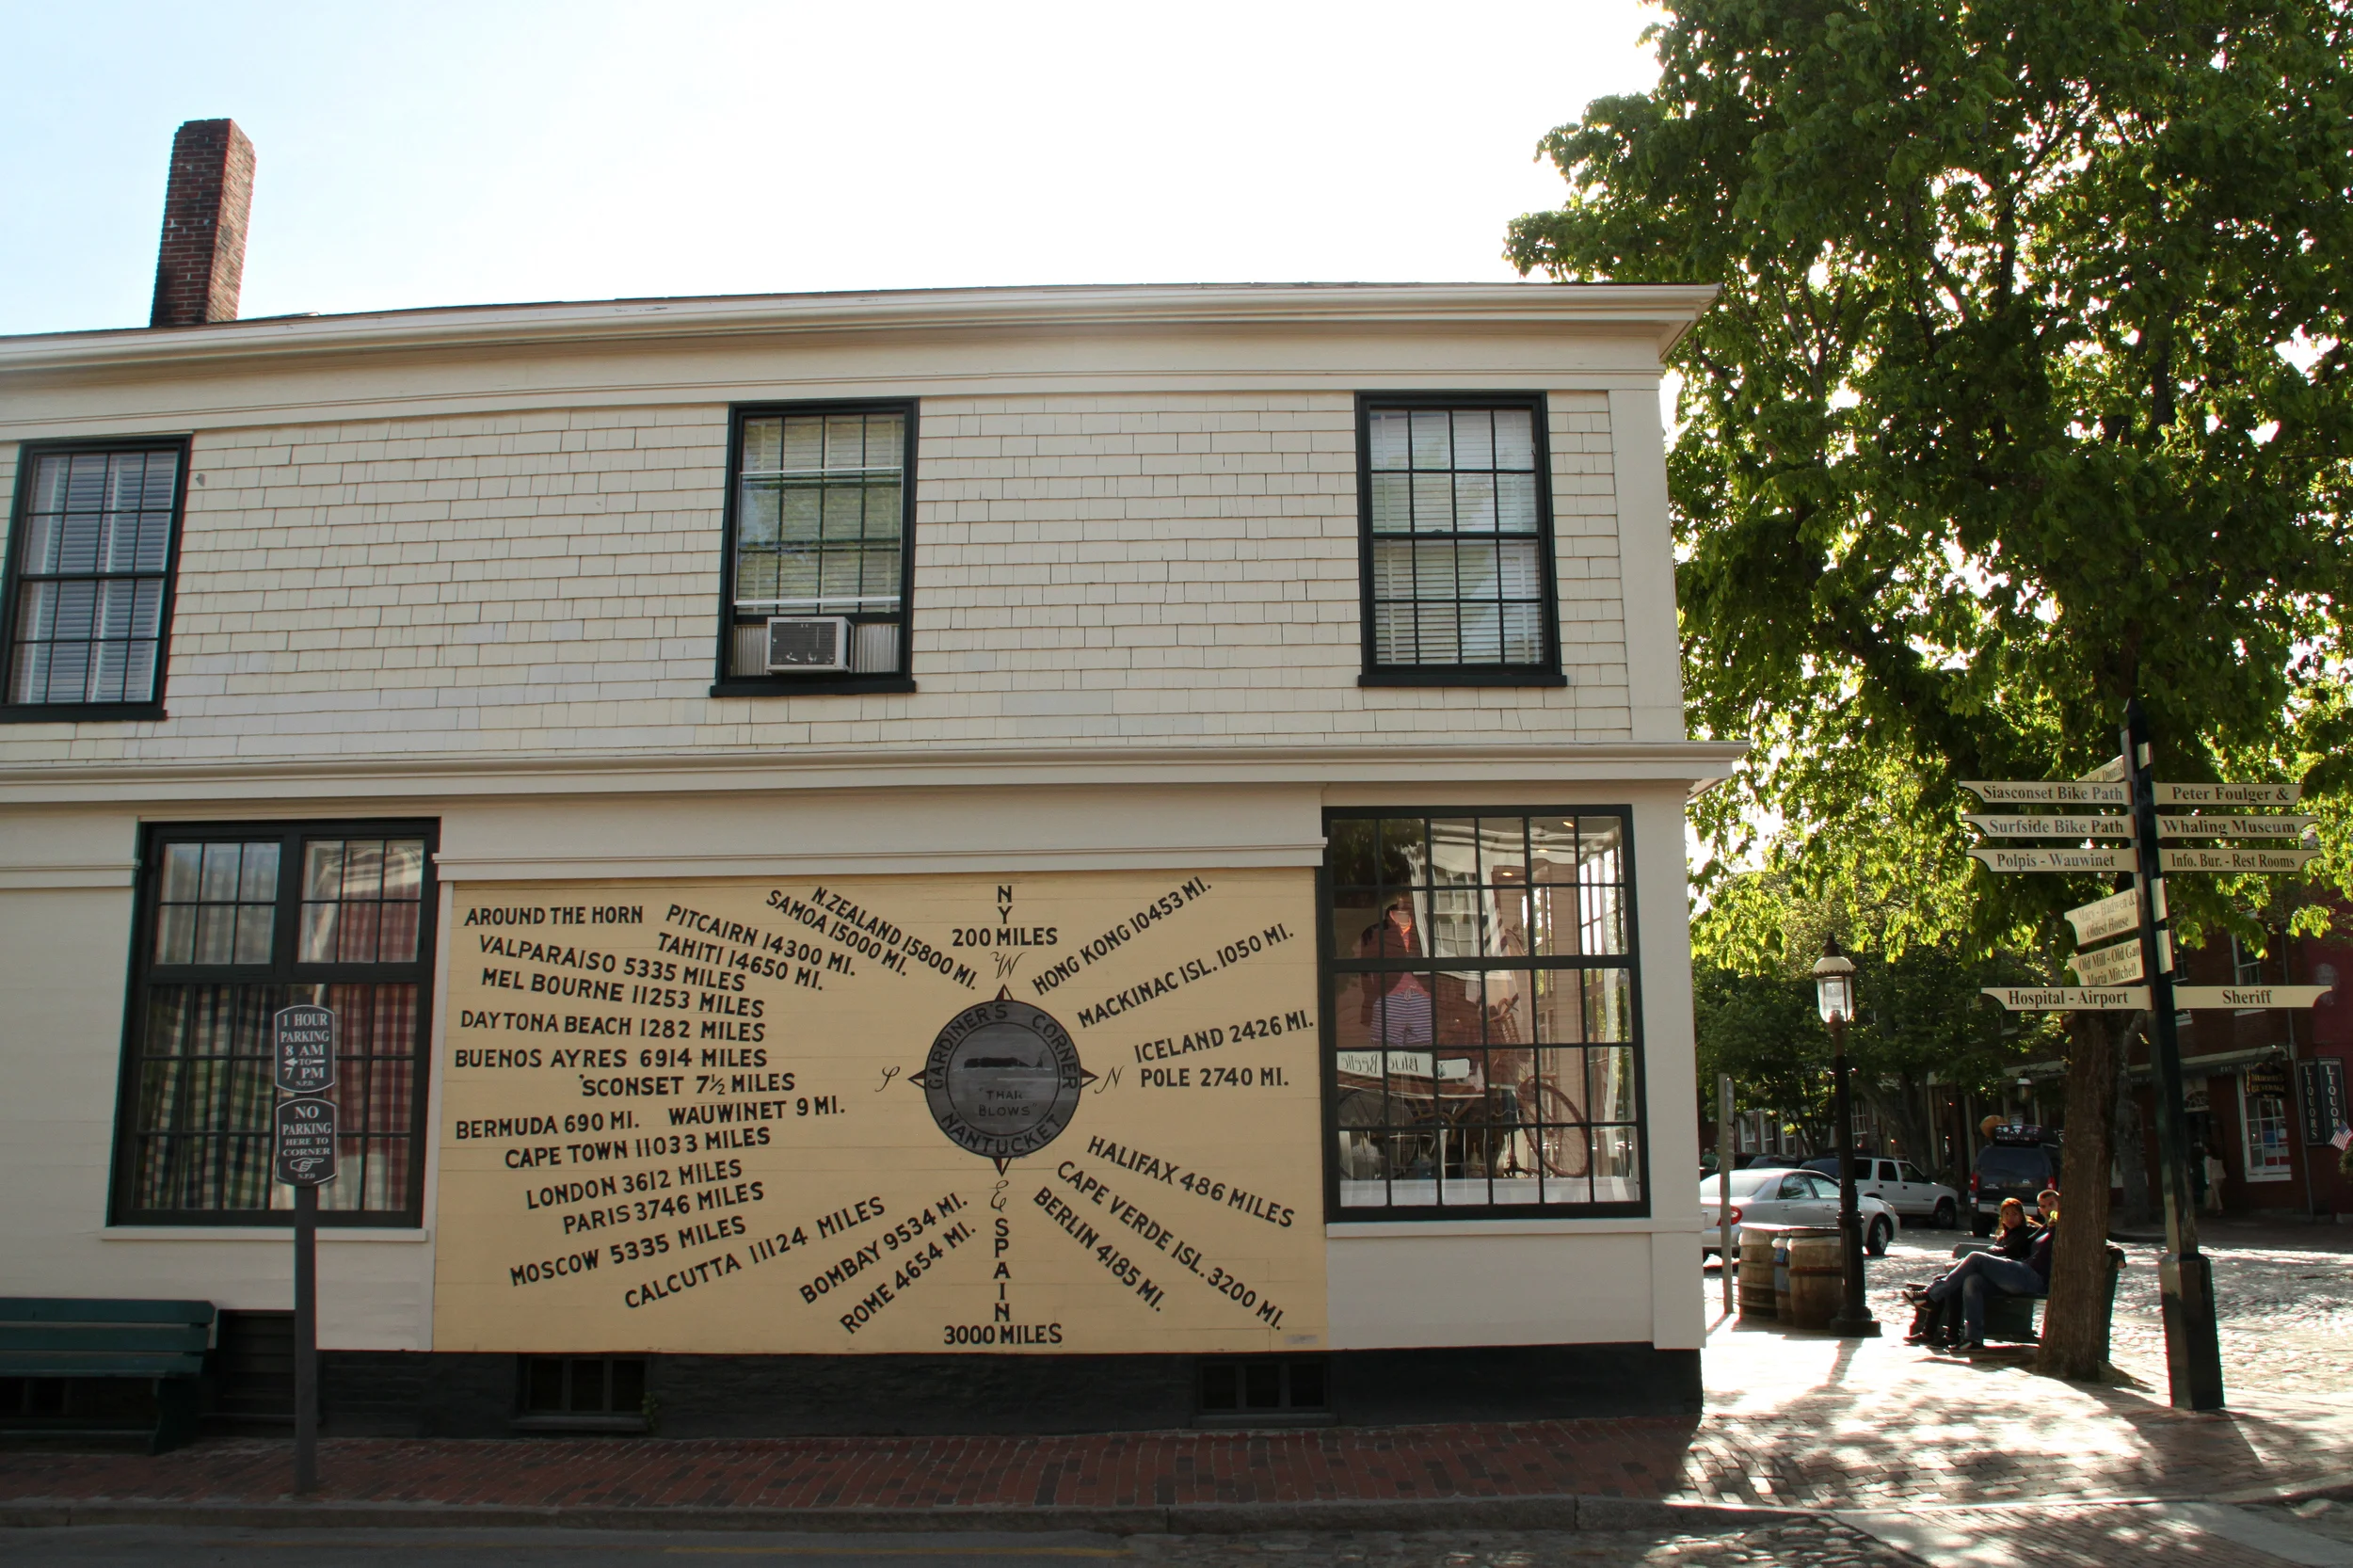 AROUND THE HORN
VALPARAISO 5335 MILES
MEL BOURNE 11253 MILES
DAYTONA BEACH 1282 MILES
BUENOS AYRES 6914 MILES
'SCONSET 7½ MILES
BERMUDA 690 MI.
WAUWINET 9 MI.
CAPE TOWN 11033 MILES
LONDON 3612 MILES
PARIS 3746 MILES
MOSCOW 5335 MILES
CALCUTTA 11124 MILES
BOMBAY 9534 MI.
ROME 4654 MI.
PITCAIRN 14300 MI.
TAHITI 14650 MI.
SAMOA 15000 MI.
N. ZEALAND 15800 MI.
NY
200 MILES
W
HONG KONG 10453 MI.
MACKINAC ISL. 1050 MI.
ICELAND 2426 MI.
POLE 2740 MI.
S
N
GARDINER'S CORNER
"THAR
BLOWS"
NANTUCKET
E
SPAIN
3000 MILES
HALIFAX 486 MILES
CAPE VERDE ISL. 3200 MI.
BERLIN 4185 MI.
1 HOUR
PARKING
8 AM
TO
7 PM
N.P.D.
NO
PARKING
HERE TO
CORNER
N.P.D.
Blue Beetle
Siasconset Bike Path
Surfside Bike Path
Polpis - Wauwinet
Oldest House
Old Mill - Old Gaol
Maria Mitchell
Hospital - Airport
Peter Foulger &
Whaling Museum
Info. Bur. - Rest Rooms
Sheriff
LIQUORS
LIQUORS